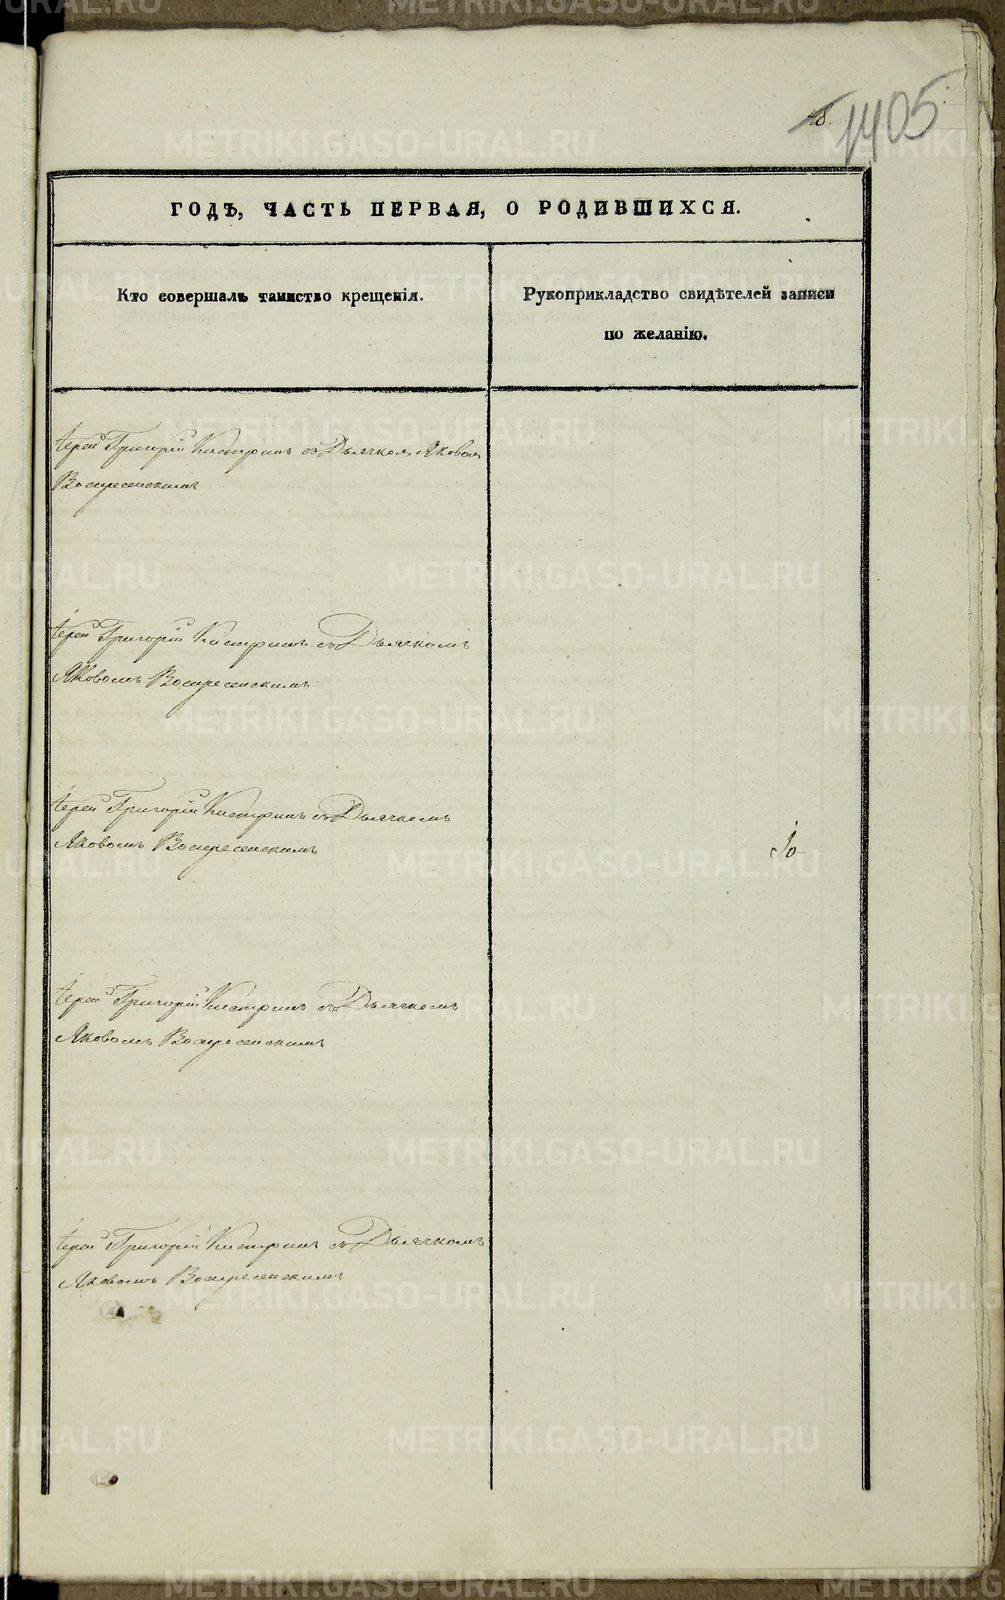 1405
ГОДЪ, ЧАСТЬ ПЕРВАЯ, О РОДИВШИХСЯ.
Кто совершалъ таинство крещенія.
Рукоприкладство свидѣтелей записи
по желанію.
Іерей Григорій съ Дьячком Яковом
Воскресенскимъ
Іерей Григорій съ Дьячкомъ
Яковомъ Воскресенскимъ
Іерей Григорій съ Дьячкомъ
Яковомъ Воскресенскимъ
Іерей Григорій съ Дьячкомъ
Яковомъ Воскресенскимъ
Іерей Григорій съ Дьячкомъ
Яковомъ Воскресенскимъ
METRIKI.GASO-URAL.RU